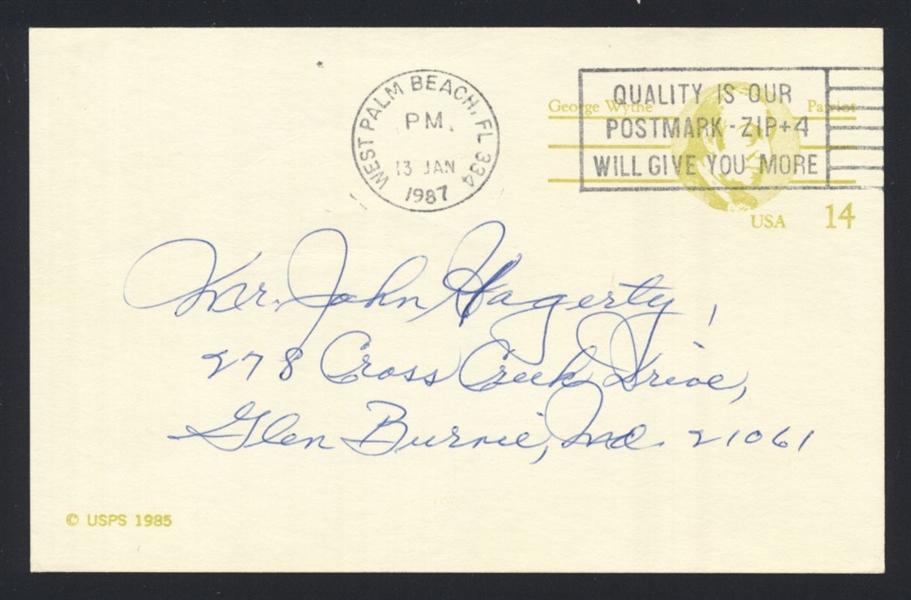 WEST PALM BEACH, FL 334
PM
13 JAN
1987
QUALITY IS OUR
POSTMARK - ZIP+4
WILL GIVE YOU MORE
George Wythe Patriot
USA 14
Mr. John Hagerty,
278 Cross Creek Drive,
Glen Burnie, Md. 21061
© USPS 1985